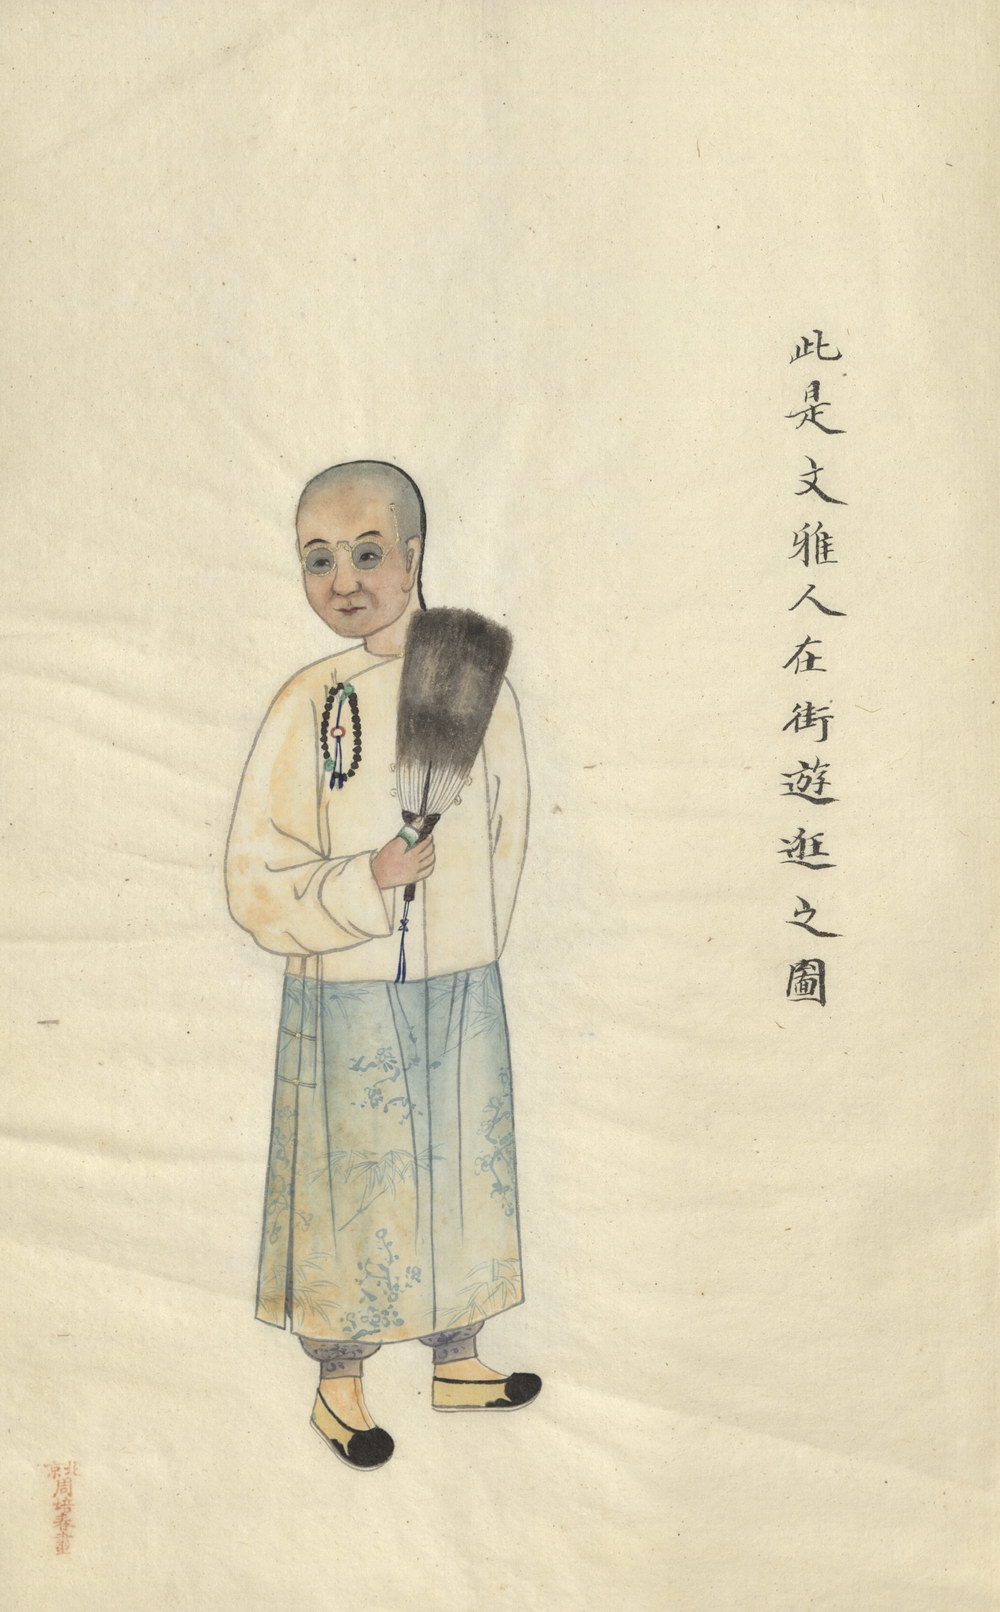 此是文雅人在街遊逛之圖
北京周培春畫